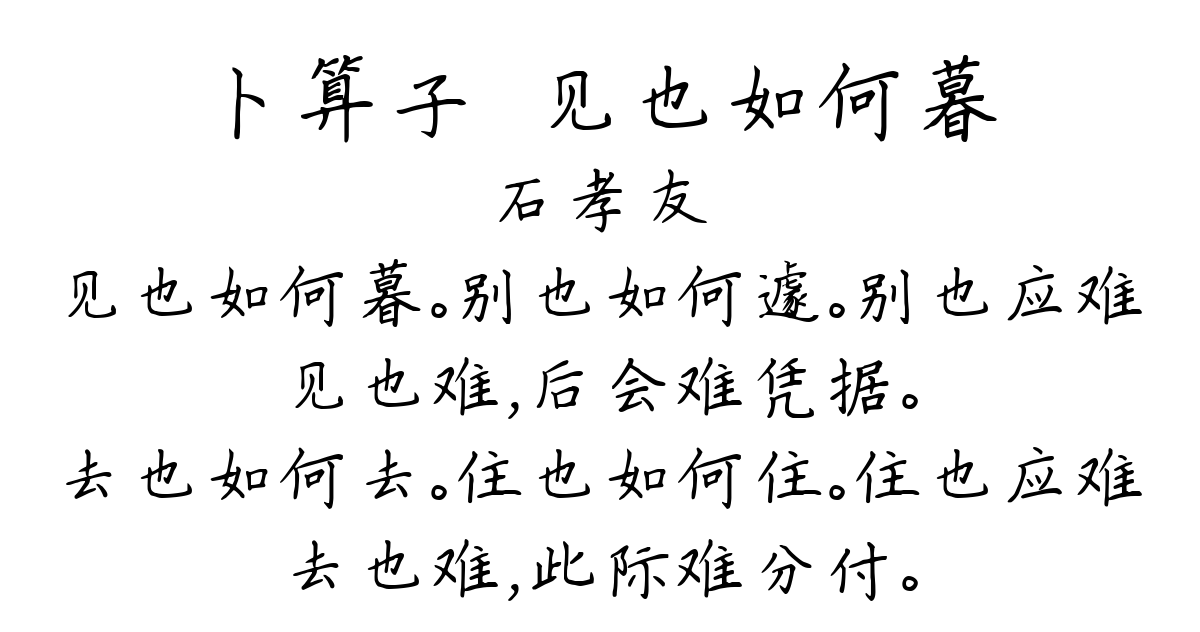 卜算子 见也如何暮
石孝友
见也如何暮。别也如何遽。别也应难
见也难,后会难凭据。
去也如何去。住也如何住。住也应难
去也难,此际难分付。